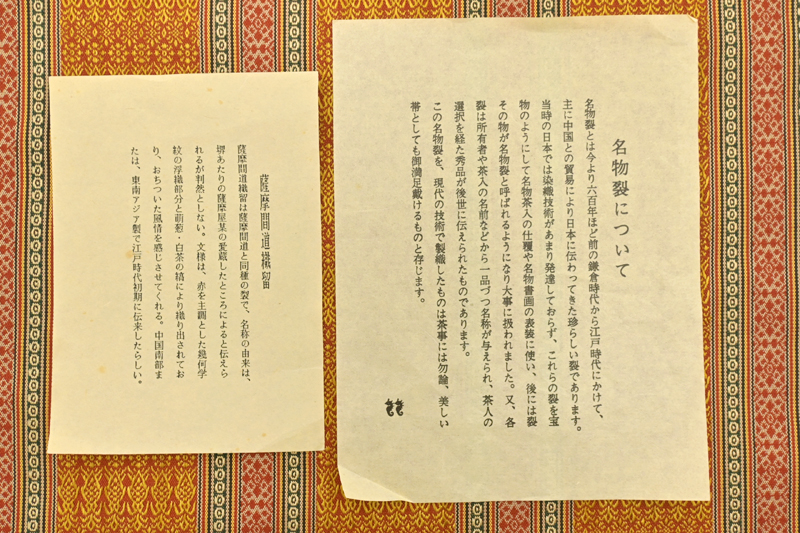 名物裂について
名物裂とは今より六百年ほど前の鎌倉時代から江戸時代にかけて、
主に中国との貿易により日本に伝わってきた珍らしい裂であります。
当時の日本では染織技術があまり発達しておらず、これらの裂を宝
物のようにして名物茶入の仕覆や名物書画の表装に使い、後には裂
その物が名物裂と呼ばれるようになり大事に扱われました。又、各
裂は所有者や茶入の名前などから一品づつ名称が与えられ、茶人の
選択を経た秀品が後世に伝えられたものであります。
この名物裂を、現代の技術で製織したものは茶事には勿論、美しい
帯としても御満足戴けるものと存じます。
薩摩間道織留
薩摩間道織留は薩摩間道と同種の裂で、名称の由来は、
堺あたりの薩摩屋某の愛蔵したところによると伝えら
れるが判然としない。文様は、赤を主調とした幾何学
紋の浮織部分と萌葱・白茶の縞により織り出されてお
り、おちついた風情を感じさせてくれる。中国南部ま
たは、東南アジア製で江戸時代初期に伝来したらしい。